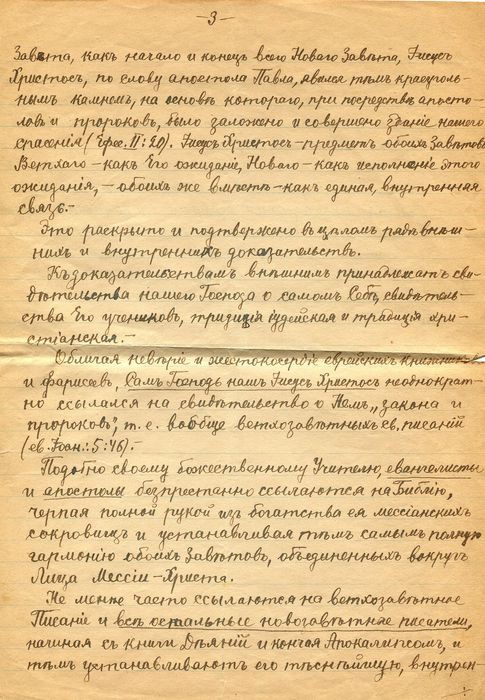 -3-
Завѣта, какъ начало и конецъ всего Новаго Завѣта, Іисусъ
Христосъ, по слову апостола Павла, явился тѣмъ краеуголь-
нымъ камнемъ, на основѣ котораго, при посредствѣ апосто-
ловъ и пророковъ, было заложено и совершено зданіе нашего
спасенія (Ефес. II: 20). Іисусъ Христосъ-предметъ обоихъ Завѣтовъ
Ветхаго-какъ Его ожиданіе, Новаго-какъ исполненіе этого
ожиданія,-обоихъ же вмѣстѣ-какъ единая, внутренная
связь.-
Это раскрыто и подтвержено въ цѣломъ рядѣ внѣш-
нихъ и внутреннихъ доказательствъ.
Къ доказательствамъ внѣшнимъ принадлежатъ сви-
дѣтельства нашего Господа о самомъ Себѣ, свидѣтель-
ства Его учениковъ, традиція іудейская и традиція хри-
стіанская.-
Обличая невѣріе и жестокосердіе еврейскихъ книжник
и фарисеевъ, Самъ Господь нашъ Іисусъ Христосъ неоднократ-
но ссылался на свидѣтельство о Немъ „закона и
пророковъ", т. е. вообще ветхозавѣтныхъ св. писаній
(ев. Іоан.: 5: 46).-
Подобно своему божественному Учителю, евангелисты
и апостолы безпрестанно ссылаются на Библію,
черпая полной рукой изъ богатства ея мессіанскихъ
сокровищъ и устанавливая тѣмъ самымъ полную
гармонію обоихъ Завѣтовъ, объединенныхъ вокругъ
Лица Мессіи-Христа.
Не менѣе часто ссылаются на ветхозавѣтное
Писаніе и всѣ остальные новозавѣтные писатели,
начиная съ книги Дѣяній и кончая Апокалипсомъ, и
тѣмъ устанавливаютъ его тѣснѣйшую, внутрен-